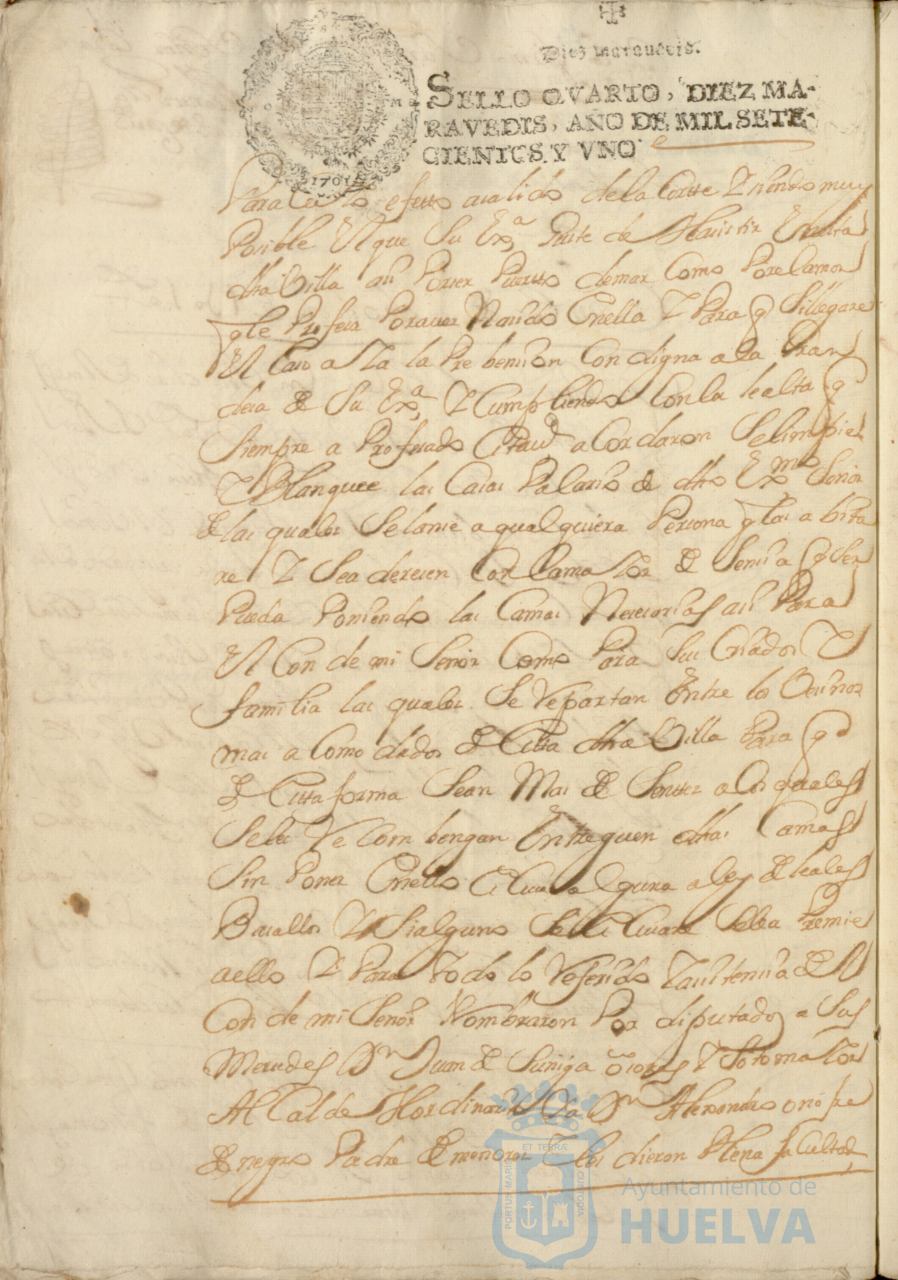 Diez maravedis.
SELLO QVARTO, DIEZ MA-
RAVEDIS, AÑO DE MIL SETE-
CIENTOS Y VNO
1701
Para cuio efetto a salido de la Corte Y siendo muy
Posible el que Su Exª Guste de Asistir En esta
dha Billa asi Por ser Puerto de mar Como Por el amor
q le Profesa Por aver Nacido En ella Y Para q si llegare
el Caso aia la Prebension Condigna a la Gran
desa de Su Exª, Y Cumpliendo Con la lealtad q
Siempre a Profesado Esta Vª acordaron Se limpien
Y Blanqueen las Casas Palacio de dho Exmo Señor
de las quales Se lanse a qualquiera Persona q las abita
re Y Se aderesen Con la maior desensia q Ser
Pueda Poniendo las Camas Nesesarias asi Para
el Conde mi Señor Como Para Sus Criados Y
familia las quales Se Repartan Entre los Besinos
mas acomodados de Esta dha Billa Para q
de Esta forma Sean Mas desentes a los quales
Se les Recombengan Entreguen dhas Camas
Sin Poner En ello Escusa alguna a ley de leales
Basallos Y Si alguno Se Escusare Se le a Premie
a ello Y Para todo lo Referido Y asistensia de el
Conde mi Señor Nombraron Por diputados a Sus
Mersedes Dn Juan de Suñiga Osores Y Sotomaior
Alcalde Hordinario Y a Dn Alexandro onofre
de negro Padre de menores Y les dieron Plena facultad
Ayuntamiento de
HUELVA
PORTUS MARIS
ET TERRÆ
CUSTODIA